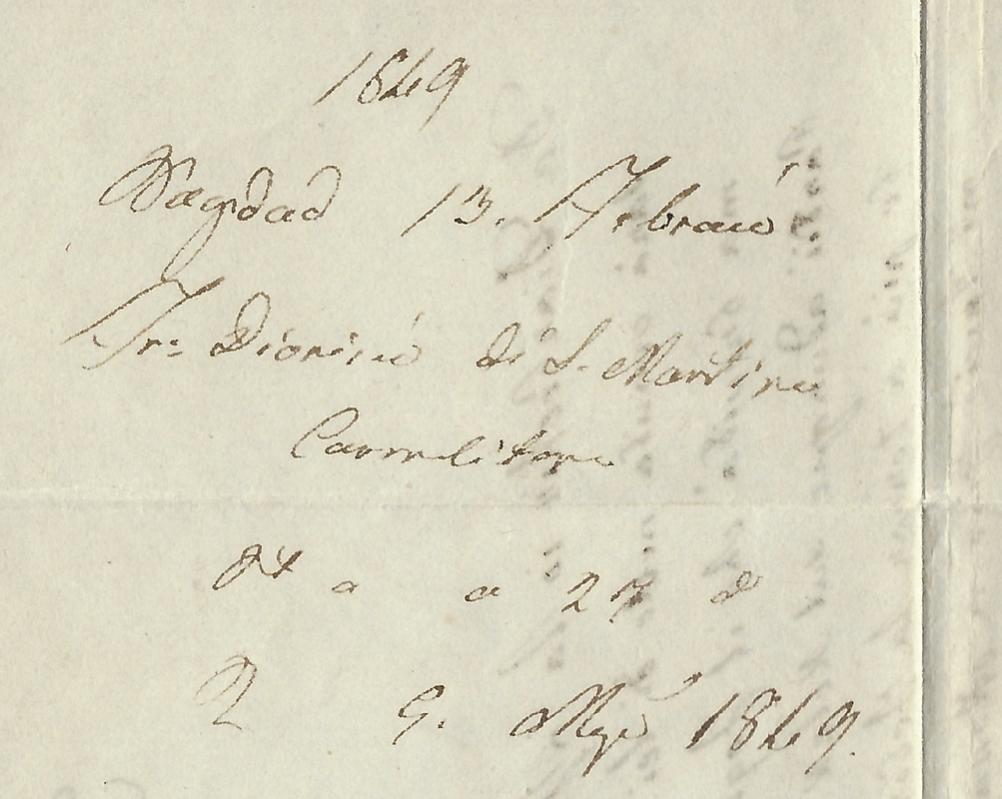 1849
Bagdad 13. Febraio
Fre Dionisio di S. Martino
Carmelitano
a a 27 d°
R 9. Mgio 1849.